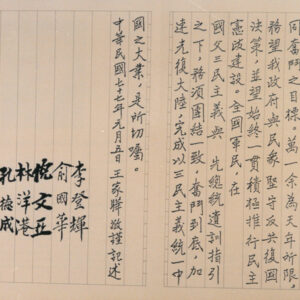 同奮鬥之目標,萬一余為天年所限,
務望我政府與民眾堅守反共復國
決策,並望始終一貫積極推行民主
憲政建設。全國軍民,在
三民主義與 先總統遺訓指引
之下,務須團結一致,奮鬥到底,加
速光復大陸,完成以三民主義統一中
國之大業,是所切囑。
中華民國七十七年元月五日王家驊敬謹記述
李登輝
俞國華
倪文亞
林洋港
孔德成